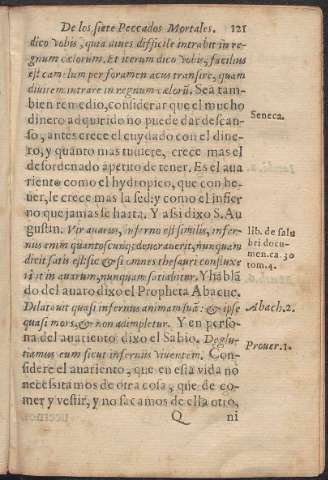 De los siete Peccados Mortales. 121
dico vobis, quia diues difficile intrabit in re
gnum cælorum. Et iterum dico vobis, facilius
est camelum per foramen acus transire, quam
diuitem intrare in regnum cælorũ. Sea tam
bien remedio, considerar que el mucho
dinero adquirido no puede dar descan-
so, antes crece el cuydado con el dine-
ro, y quanto mas tuuiere, crece mas el
desordenado apetito de tener. Es el aua
riento como el hydropico, que con be-
uer, le crece mas la sed: y como el infier
no que jamas se harta. Y assi dixo S. Au
gustin. Vir auarus, inferno est similis, infer-
nus enim quantoscunq; deuorauerit, nunquam
dicit satis est: sic & si omnes thesauri confluxe
rint in auarum, nunquam satiabitur. Y habla
do del auaro dixo el Propheta Abacuc.
Dilatauit quasi infernus animam suã: & ipse
quasi mors, & non adimpletur. Y en perso
na del auariento dixo el Sabio. Deglu-
tiamus eum sicut infernus viuentem. Con-
sidere el auariento, que en esta vida no
necessitamos de otra cosa, que de co-
mer y vestir, y no sacamos de ella otro,
Q ni
Seneca.
lib. de salu
bri docu-
men. ca. 30
tom. 4.
Abach. 2.
Prouer. 1.